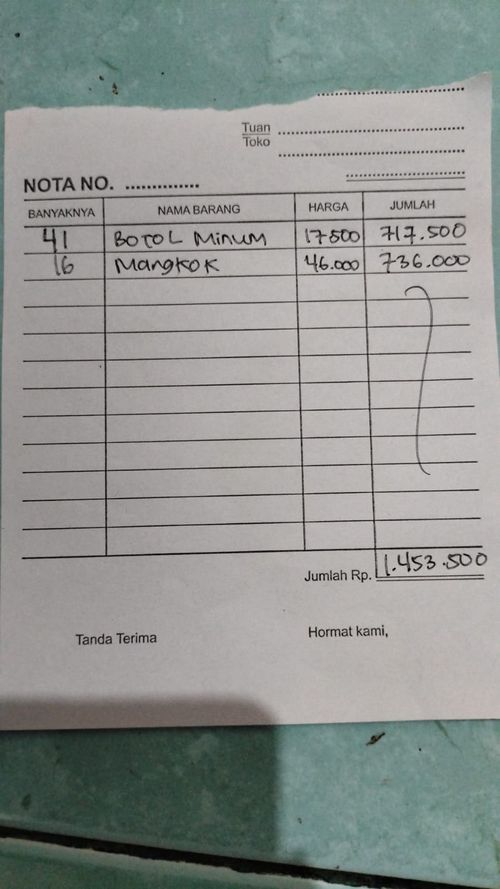 Tuan
Toko
NOTA NO.
BANYAKNYA NAMA BARANG HARGA JUMLAH
41 BOTOL Minum 17500 717.500
16 Mangkok 46.000 736.000
Jumlah Rp. 1.453.500
Tanda Terima Hormat kami,